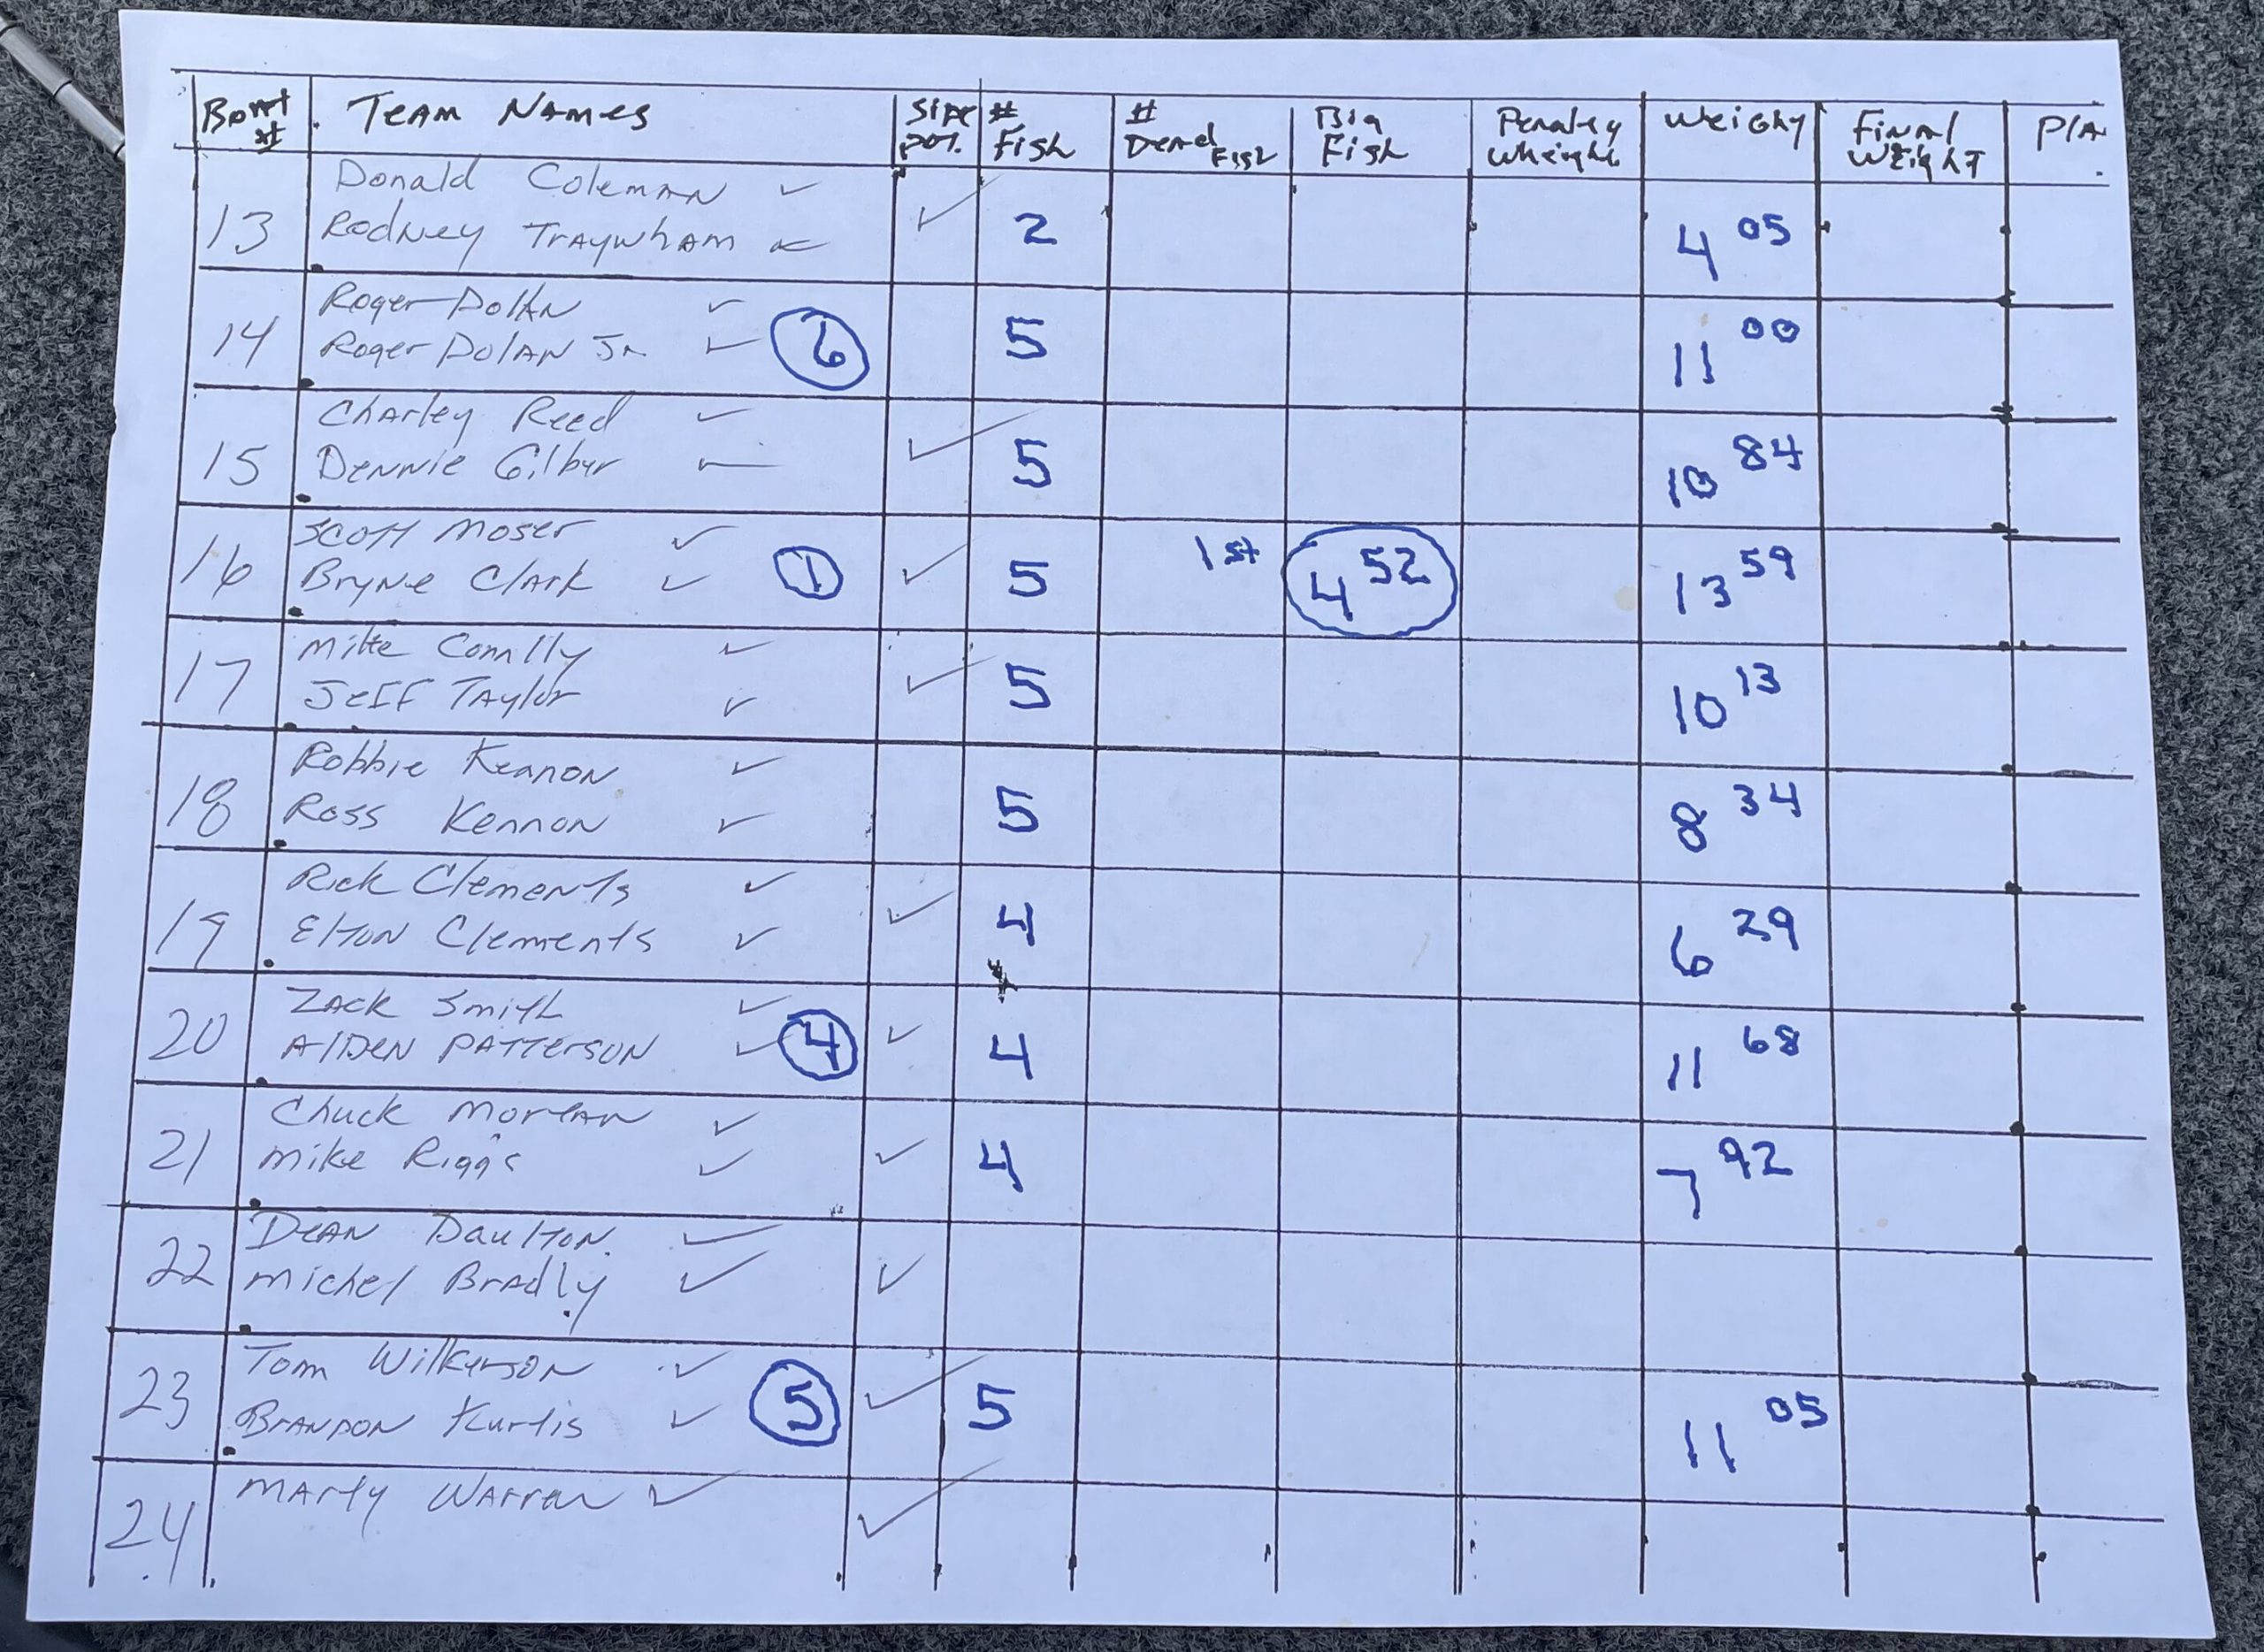 Boat # Team Names Side pot. # Fish # Dead Fish Big Fish Penalty Wheight Weighy Final Weight P/A
Donald Coleman ✓
13 Rodney Traynham ✓ 2 4 05
Roger Dolan ✓
14 Roger Dolan Jr. ✓ 6 5 11 00
Charley Reed ✓
15 Dennie Gilbur 5 10 84
Scott Moser ✓
16 Bryne Clark ✓ 1 ✓ 5 1st 4 52 13 59
Mike Connlly ✓
17 Jeff Taylor ✓ ✓ 5 10 13
Robbie Keanon ✓
18 Ross Kennon ✓ 5 8 34
Rick Clements ✓
19 Elton Clements ✓ ✓ 4 6 29
Zack Smith ✓
20 Aiden Patterson ✓ 4 ✓ 4 11 68
Chuck Morgan ✓
21 Mike Riggs ✓ ✓ 4 7 92
Dean Daulton. ✓
22 Michel Bradly ✓ ✓
Tom Wilkerson ✓
23 Brandon Kurtis ✓ 5 ✓ 5 11 05
Marty Warren ✓
24 ✓